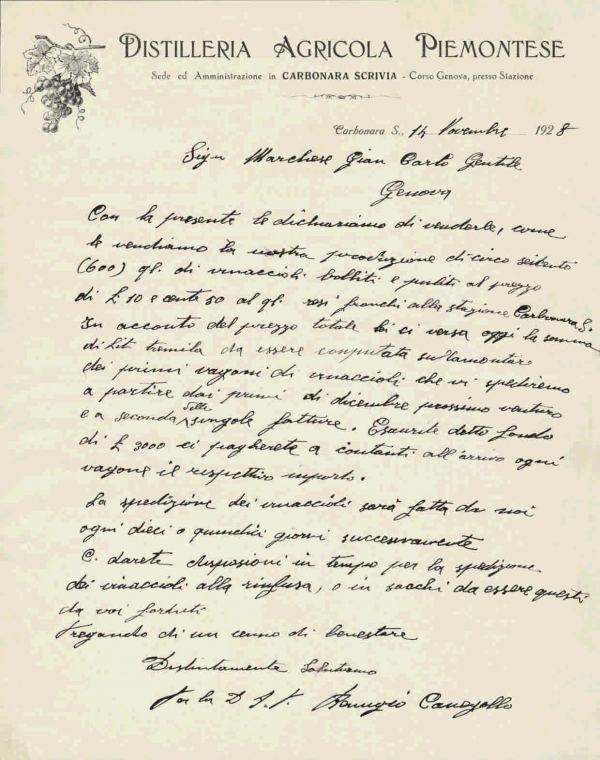 DISTILLERIA AGRICOLA PIEMONTESE
Sede ed Amministrazione in CARBONARA SCRIVIA - Corso Genova, presso Stazione
Carbonara S., 14 Novembre 1928
Sigr Marchese Gian Carlo Gentile
Genova
Con la presente le dichiariamo di venderle, come
le vendiamo la nostra produzione di circa seicento
(600) ql. di vinaccioli bolliti e puliti al prezzo
di £ 10 e cent 50 al ql. resi franchi alla stazione Carbonara S.
In acconto del prezzo totale lei ci versa oggi la somma
di Lit tremila da essere computata sull'amontare
dei primi vagoni di vinaccioli che vi spediremo
a partire dai primi di dicembre prossimo venturo
e a seconda delle singole fatture. Esaurite detto fondo
di £ 3000 ci pagherete a contanti all'arrivo ogni
vagone il rispettivo importo.
La spedizione dei vinaccioli sarà fatta da noi
ogni dieci o quindici giorni successivamente
C. darete disposizioni in tempo per la spedizione
dei vinaccioli alla rinfusa, o in sacchi da essere questi
da voi forniti
Pregando di un cenno di benestare
Distintamente Salutiamo
Per la D A P. Remigio Canegallo